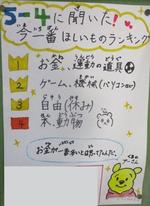 5-4に聞いた!
今一番ほしいものランキング
1 お金、運動の道具
2 ゲーム、機械(パソコンなど)
3 自由(休み)
4 本、動物
お金が一番多いとは思ってたんだ。